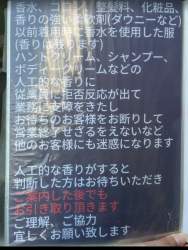 香水、コロン、整髪料、化粧品、
香りの強い柔軟剤(ダウニーなど)
以前着用時に香水を使用した服
(香りは残ります)
ハンドクリーム、シャンプー、
ボディークリームなどの
人工的な香りに
従業員に拒否反応が出て
業務に支障をきたし
お待ちのお客様をお断りして
営業終了せざるをえないなど
他のお客様にも迷惑になります
人工的な香りがすると
判断した方はお待ちいただき
ご案内した後でも
お引き取り頂きます
ご理解、ご協力
宜しくお願い致します